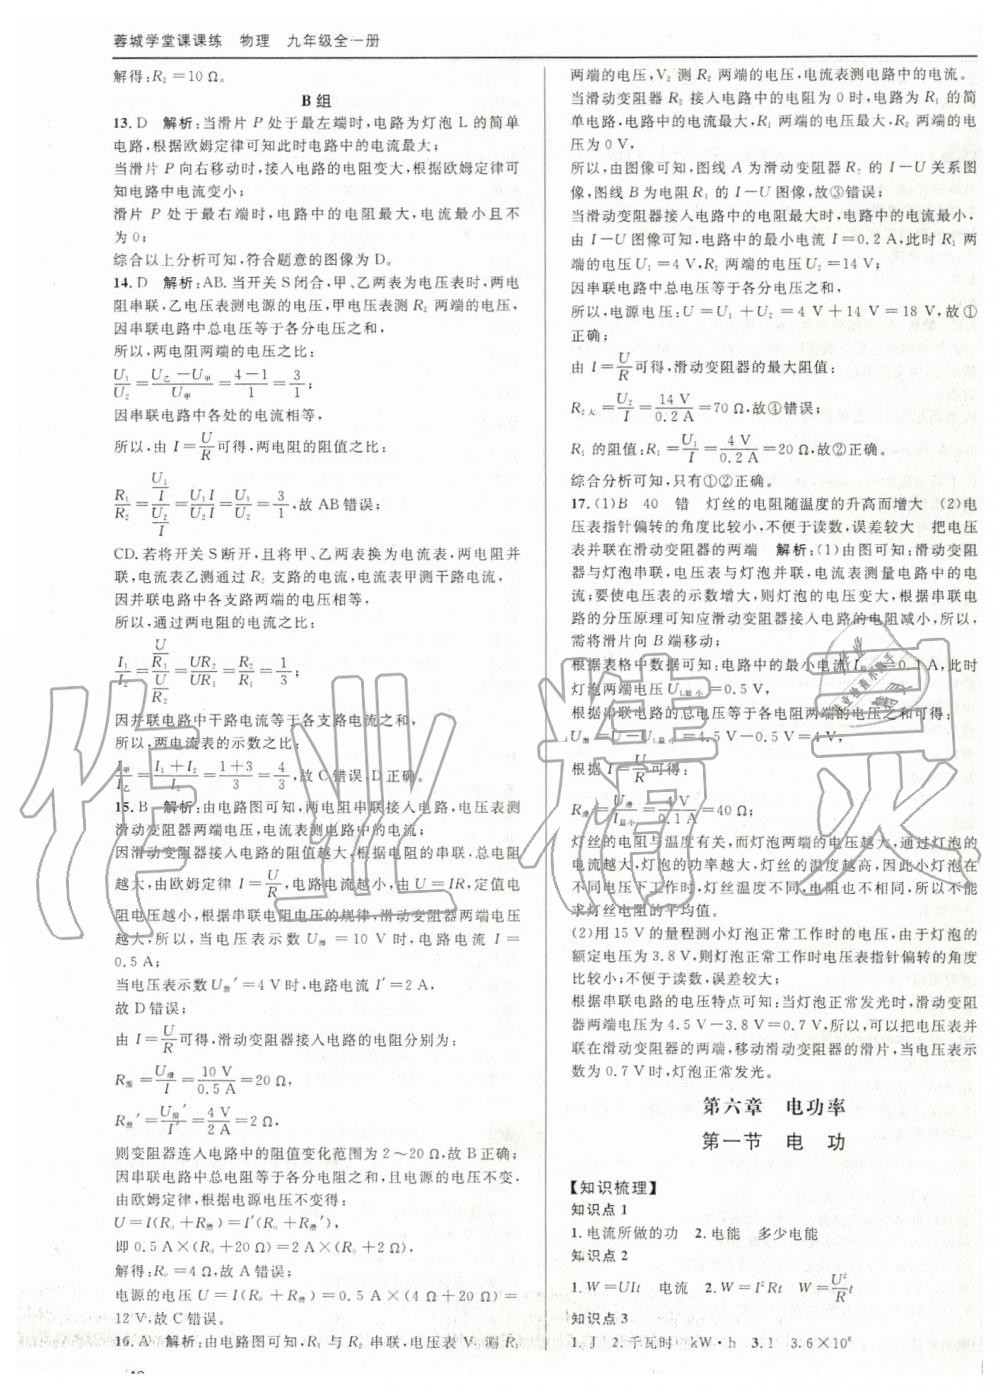 蓉城学堂课课练 物理 九年级全一册
解得:R₂=10 Ω。
B组
13. D 解析:当滑片 P 处于最左端时,电路为灯泡 L 的简单
电路,根据欧姆定律可知此时电路中的电流最大;
当滑片 P 向右移动时,接入电路的电阻变大,根据欧姆定律可
知电路中电流变小;
滑片 P 处于最右端时,电路中的电阻最大,电流最小且不
为 0;
综合以上分析可知,符合题意的图像为 D。
14. D 解析:AB.当开关 S闭合,甲、乙两表为电压表时,两电
阻串联,乙电压表测电源的电压,甲电压表测 R₂ 两端的电压,
因串联电路中总电压等于各分电压之和,
所以,两电阻两端的电压之比:
U₁/U₂=(U乙−U甲)/U甲=(4−1)/1=3/1;
因串联电路中各处的电流相等,
所以,由 I=U/R可得,两电阻的阻值之比:
R₁/R₂=(U₁/I)/(U₂/I)=U₁I/U₂I=U₁/U₂=3/1,故 AB错误;
CD.若将开关 S断开,且将甲、乙两表换为电流表时,两电阻并
联,电流表乙测通过 R₂ 支路的电流,电流表甲测干路电流,
因并联电路中各支路两端的电压相等,
所以,通过两电阻的电流之比:
I₁/I₂=(U/R₁)/(U/R₂)=UR₂/UR₁=R₂/R₁=1/3;
因并联电路中干路电流等于各支路电流之和,
所以,两电流表的示数之比:
I甲/I乙=(I₁+I₂)/I₂=(1+3)/3=4/3,故 C错误,D正确。
15. B 解析:由电路图可知,两电阻串联接入电路,电压表测
滑动变阻器两端电压,电流表测电路中的电流;
因滑动变阻器接入电路的阻值越大,根据电阻的串联,总电阻
越大,由欧姆定律 I=U/R,电路电流越小,由 U=IR,定值电
阻电压越小,根据串联电阻电压的规律,滑动变阻器两端电压
越大,所以,当电压表示数 U滑=10 V时,电路电流 I=
0.5 A;
当电压表示数 U滑′=4 V时,电路电流 I′=2 A,
故 D错误;
由 I=U/R可得,滑动变阻器接入电路的电阻分别为:
R滑=U滑/I=10 V/0.5 A=20 Ω,
R滑′=U滑′/I′=4 V/2 A=2 Ω,
则变阻器连入电路中的阻值变化范围为 2～20 Ω,故 B正确;
因串联电路中总电压等于各分电阻之和,且电源的电压不变,
由欧姆定律,根据电源电压不变得:
U=I(R₀+R滑)=I′(R₀+R滑′),
即 0.5 A×(R₀+20 Ω)=2 A×(R₀+2 Ω),
解得:R₀=4 Ω,故 A错误;
电源的电压 U=I(R₀+R滑)=0.5 A×(4 Ω+20 Ω)=
12 V,故 C错误。
16. A 解析:由电路图可知,R₁ 与 R₂ 串联,电压表 V₁测 R₁
两端的电压,V₂ 测 R₂ 两端的电压,电流表测电路中的电流。
当滑动变阻器 R₂ 接入电路中的电阻为 0时,电路为 R₁ 的简
单电路,电路中的电流最大,R₁ 两端的电压最大,R₂ 两端的电
压为 0 V,
所以,由图像可知,图线 A 为滑动变阻器 R₂ 的 I−U 关系图
像,图线 B为电阻 R₁ 的 I−U 图像,故③错误;
当滑动变阻器接入电路中的电阻最大时,电路中的电流最小,
由 I−U 图像可知,电路中的最小电流 I=0.2 A,此时 R₁ 两
端的电压 U₁=4 V,R₂ 两端的电压 U₂=14 V;
因串联电路中总电压等于各分电压之和,
所以,电源电压:U=U₁+U₂=4 V+14 V=18 V,故①
正确;
由 I=U/R可得,滑动变阻器的最大阻值:
R₂大=U₂/I=14 V/0.2 A=70 Ω,故④错误;
R₁ 的阻值:R₁=U₁/I=4 V/0.2 A=20 Ω,故②正确。
综合分析可知,只有①②正确。
17. (1)B 40 错 灯丝的电阻随温度的升高而增大 (2)电
压表指针偏转的角度比较小,不便于读数,误差较大 把电压
表并联在滑动变阻器的两端 解析:(1)由图可知:滑动变阻
器与灯泡串联,电压表与灯泡并联,电流表测量电路中的电
流;要使电压表的示数增大,则灯泡的电压变大,根据串联电路
的分压原理可知应滑动变阻器接入电路的电阻减小,所以,
需将滑片向 B端移动;
根据表格中数据可知:电路中的最小电流 I最小=0.1 A,此时
灯泡两端电压 UL最小=0.5 V,
根据串联电路的总电压等于各电阻两端的电压之和可得:
U滑=U−UL最小=4.5 V−0.5 V=4 V,
根据 I=U/R可得:
R滑=U滑/I最小=4 V/0.1 A=40 Ω;
灯丝的电阻与温度有关,而灯泡两端的电压越大,通过灯泡的
电流越大,灯泡的功率越大,灯丝的温度越高,因此小灯泡在
不同电压下工作时,灯丝温度不同,电阻也不相同,所以不能
求灯丝电阻的平均值。
(2)用 15 V的量程测小灯泡正常工作时的电压,由于灯泡的
额定电压为 3.8 V,则灯泡正常工作时电压表指针偏转的角度
比较小;不便于读数,误差较大;
根据串联电路的电压特点可知:当灯泡正常发光时,滑动变阻
器两端电压为 4.5 V−3.8 V=0.7 V,所以,可以把电压表并
联在滑动变阻器的两端,移动滑动变阻器的滑片,当电压表示
数为 0.7 V时,灯泡正常发光。
第六章 电功率
第一节 电 功
【知识梳理】
知识点 1
1.电流所做的功 2.电能 多少电能
知识点 2
1. W=UIt 电流 2. W=I²Rt W=U²/R t
知识点 3
1. J 2.千瓦时 kW·h 3.1 3.6×10⁶
作业精灵